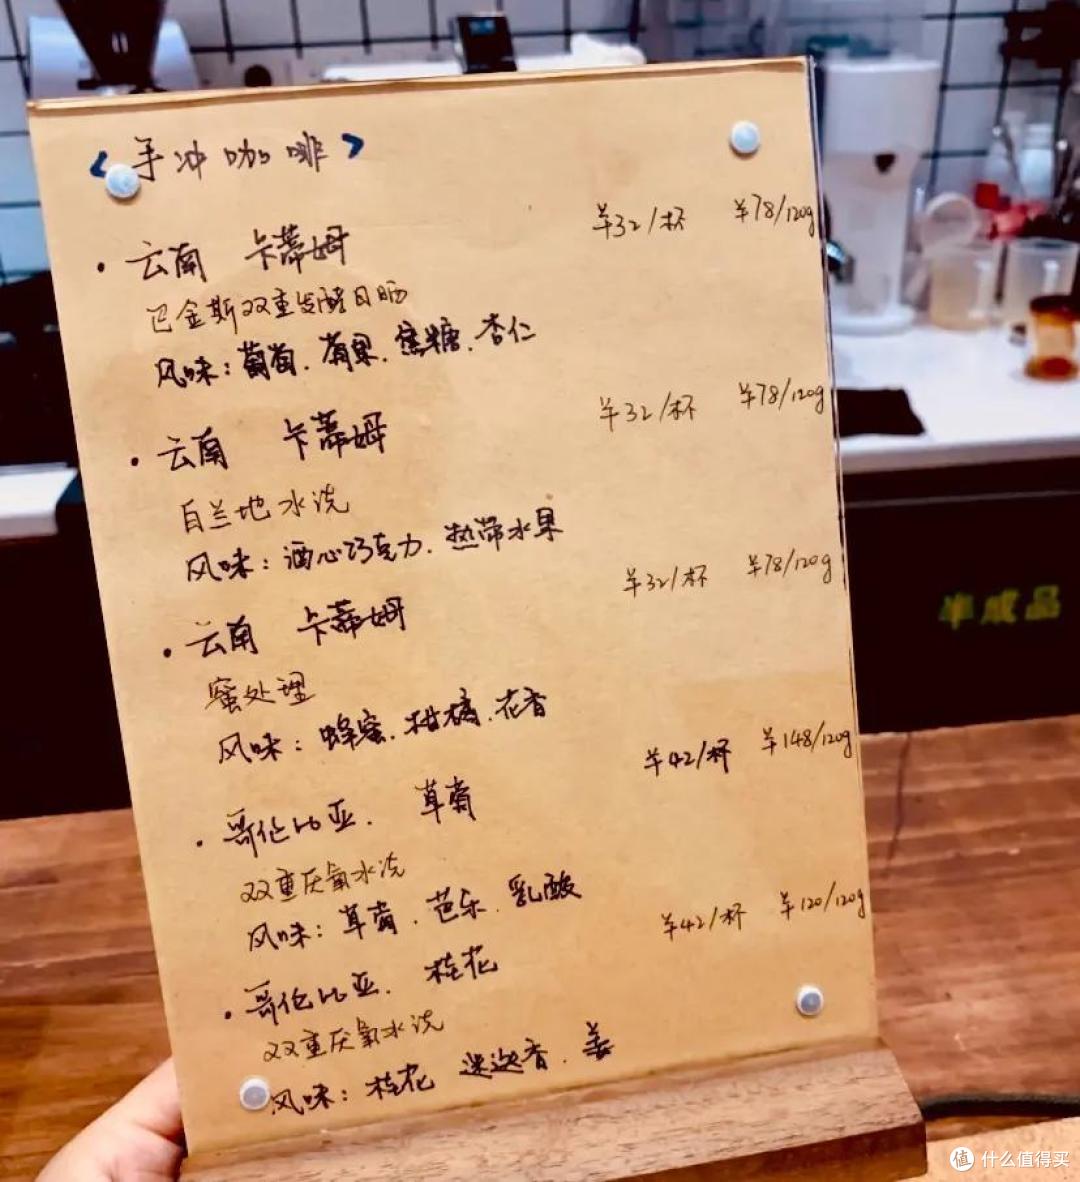 <手冲咖啡>
· 云南 卡蒂姆 ¥32/杯 ¥78/120g
巴金斯双重发酵日晒
风味：葡萄、苹果、焦糖、杏仁
· 云南 卡蒂姆 ¥32/杯 ¥78/120g
白兰地水洗
风味：酒心巧克力、热带水果
· 云南 卡蒂姆 ¥32/杯 ¥78/120g
蜜处理
风味：蜂蜜、柑橘、花香
· 哥伦比亚. 草莓 ¥42/杯 ¥148/120g
双重厌氧水洗
风味：草莓、芭乐、乳酸
· 哥伦比亚. 桂花 ¥42/杯 ¥120/120g
双重厌氧水洗
风味：桂花 迷迭香、姜
半成品
值 什么值得买